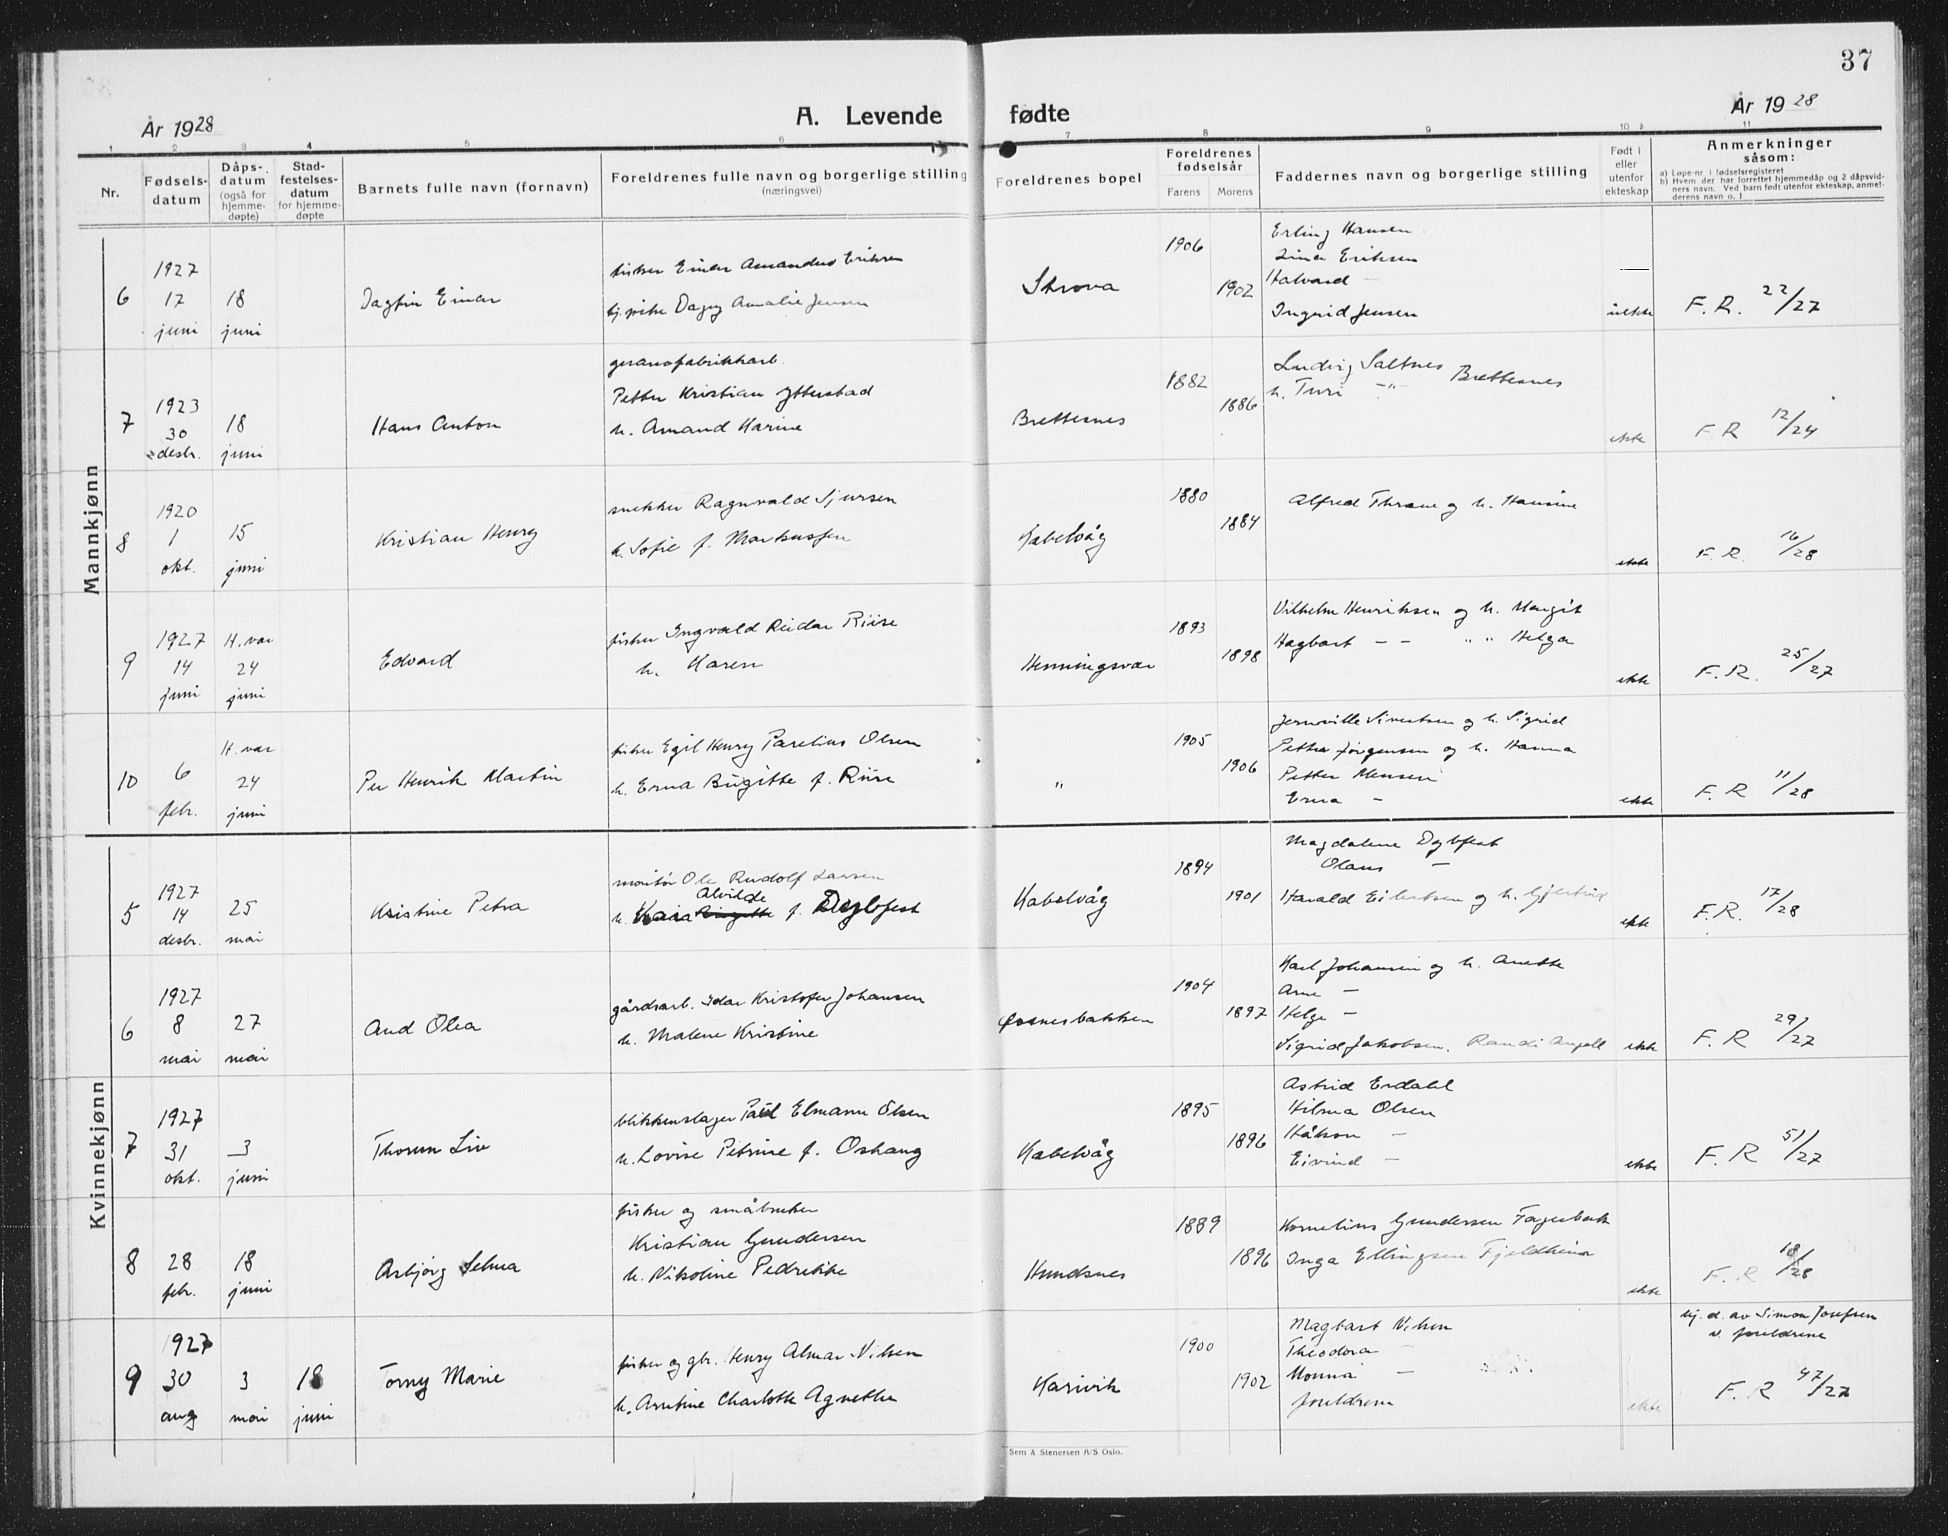 37
År 1928
A. Levende fødte
År 1928
1 2 3 4 5 6 7 8 9 10 11
Nr.
Fødsels-
datum
Dåps-
datum
(også for
hjemme-
døpte)
Stad-
festelses-
datum
for hjemme-
døpte
Barnets fulle navn (fornavn)
Foreldrenes fulle navn og borgerlige stilling
(næringsvei)
Foreldrenes bopel
Foreldrenes
fødselsår
Farens Morens
Faddernes navn og borgerlige stilling
Født i
eller
utenfor
ekteskap
Anmerkninger
såsom:
a) Løpe-nr. i fødselsregisteret
b) Hvem der har forrettet hjemmedåp og 2 dåpsvid-
ners navn. Ved barn født utenfor ekteskap, anmel-
derens navn o. l
Mannkjønn
6
1927
17
juni
18
juni
Dagfin Einar
fisker Einar Amandus Eriksen
Dagny Amalie Jensen
Skrova
1906
1902
Erling Hansen
Eriksen
Halvard –
Ingrid Jensen
uekte
F. R. 22/27
7
1923
30
desbr.
18
juni
Hans Anton
guanofabrikkarb.
Petter Kristian Ytterstad
h. Amand Karine
Brettesnes
1882
1886
Ludvig Saltnes Brettesnes
h. Turi – " –
ekte
F. R 12/24
8
1920
1
okt.
15
juni
Kristian Henry
snekker Ragnvald Sjursen
h. Sofie f. Markussen
Kabelvåg
1880
1884
Alfred Thrane og h. Hansine
ekte
F. R. 16/28
9
1927
14
juni
H. var
24
juni
Edvard
fisker Ingvald Reidar Riise
h. Karen
Henningsvær
1893
1898
Vilhelm Henriksen og h. Margit
Hagbart – – " " Helga
ekte
F. R. 25/27
10
6
febr.
H. var
24
juni
Per Henrik Martin
fisker Egil Henry Parelius Olsen
h. Erna Birgitte f. Riise
"
1905
1906
Sivertsen og h. Sigrid
Petter Jørgensen og h. Hanna
Petter
Erna –
ekte
F. R 11/28
Kvinnekjønn
5
1927
14
desbr.
25
mai
Kristine Petra
montør Ole Rudolf Larsen
Alvilde
h. Kaia Birgitte f. Dybfest
Kabelvåg
1894
1901
Magdalene Dybfest
Olaus –
Harald Eilertsen og h. Gjertrud
ekte
F. R. 17/28
6
1927
8
mai
27
mai
Aud Olea
gårdsarb. Idar Kristofer Johansen
h. Malene Kristine
Øvsnesbakken
1904
1897
Karl Johansen og h. Anette
Arne –
Helge –
Sigrid Jakobsen. Randi Angell
ekte
F. R 29/27
7
1927
31
okt.
3
juni
Thorun Liv
blikkenslager Paul Elmann Olsen
h. Lovise Petrine f. Oshaug
Kabelvåg
1895
1896
Astrid Erdahl
Hilma Olsen
Håkon –
Eivind –
ekte
F. R 51/27
8
28
febr.
18
juni
Asbjørg Selma
fisker og småbruker
Kristian Gundersen
h. Nikoline Pedrikke
Hundsnes
1889
1896
Kornelius Gundersen Fagerbakk
Inga Ellingsen Fjeldheim
ekte
F. R 18/28
9
1927
30
aug
3
mai
18
juni
Torny Marie
fisker og gbr. Henry Almar Nilsen
h. Anetine Charlotte Agnethe
Karivik
1900
1902
Magbart Nilsen
Theodora –
Monna –
foreldrene
ekte
hj. d. av Simon Josefsen
v. foreldrene
F. R 47/27
Sem & Stenersen A/S Oslo.